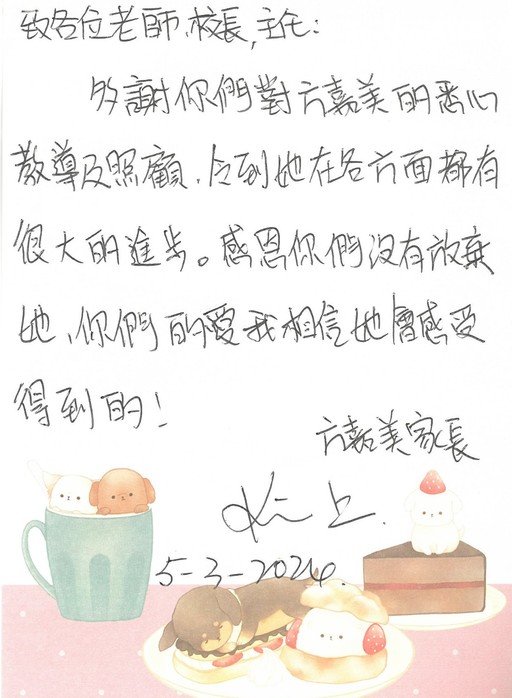 致各位老師、校長,主任:
多謝你們對方嘉美的悉心
教導及照顧,令到她在各方面都有
很大的進步。感恩你們沒有放棄
她、你們的愛我相信她會感受
得到的!
方嘉美家長
上.
5-3-2024